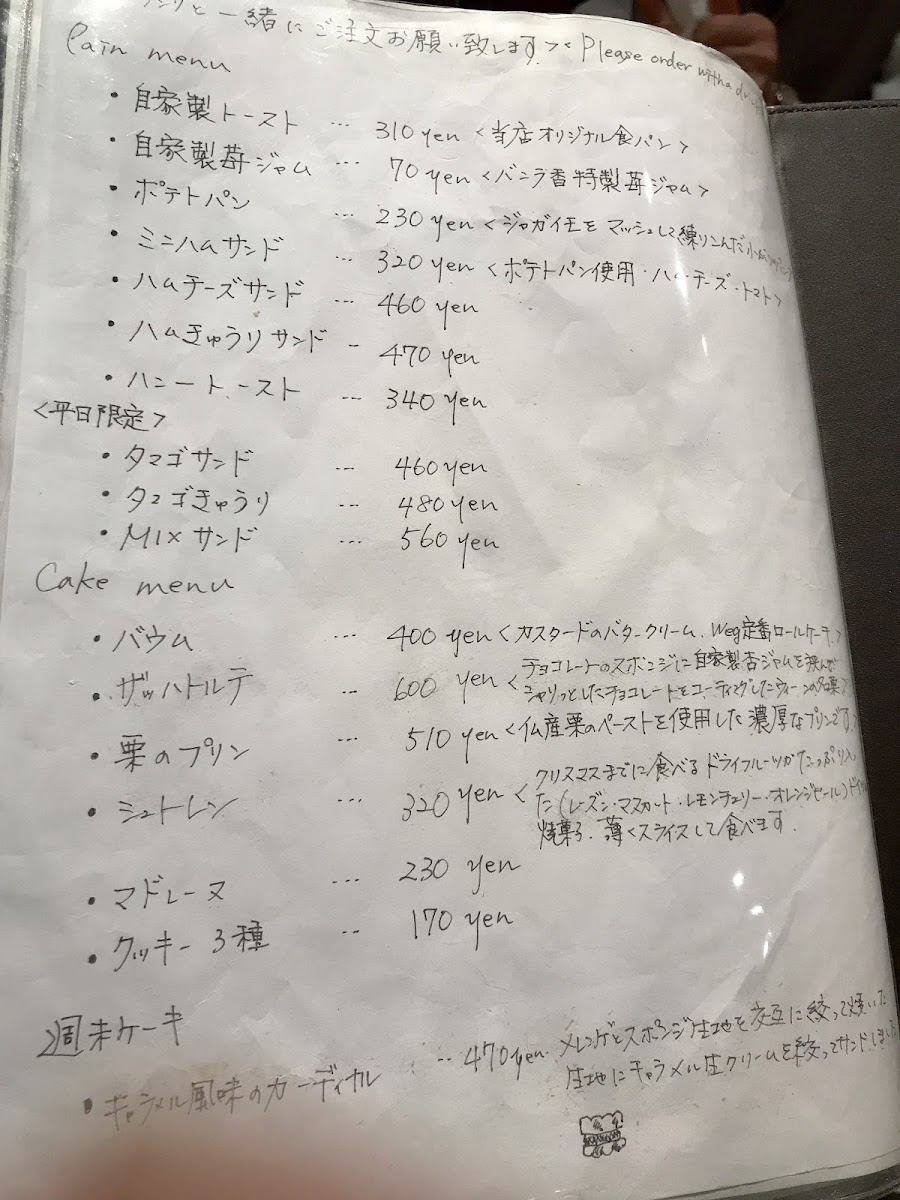 と一緒にご注文お願い致します。＞＜Please order with a
Pain menu
・自家製トースト … 310 yen ＜当店オリジナル食パン＞
・自家製苺ジャム … 70 yen ＜バニラ香特製苺ジャム＞
・ポテトパン … 230 yen ＜ジャガイモをマッシュして練りこんだ
・ミニハムサンド … 320 yen ＜ポテトパン使用・ハム・チーズ・トマト＞
・ハムチーズサンド … 460 yen
・ハムきゅうりサンド - 470 yen
・ハニートースト … 340 yen
＜平日限定＞
・タマゴサンド … 460 yen
・タマゴきゅうり … 480 yen
・MIXサンド … 560 yen
Cake menu
・バウム … 400 yen ＜カスタードのバタークリーム、Weg定番ロールケーキ＞
・ザッハトルテ … 600 yen ＜チョコレートのスポンジに自家製杏ジャムを挟んだ
シャリっとしたチョコレートをコーティングしたウィーンの名菓＞
・栗のプリン … 510 yen ＜仏産栗のペーストを使用した濃厚なプリンです＞
・シュトレン … 320 yen ＜クリスマスまでに食べるドライフルーツがたっぷり入っ
た(レーズン・マスカット・レモンチェリー・オレンジピール)ドイツ
焼菓子. 薄くスライスして食べます.
・マドレーヌ … 230 yen
・クッキー3種 … 170 yen
週末ケーキ
・キャラメル風味のカーディナル … 470 yen メレンゲとスポンジ生地を交互に絞って焼いた
生地にキャラメル生クリームを絞ってサンドしました